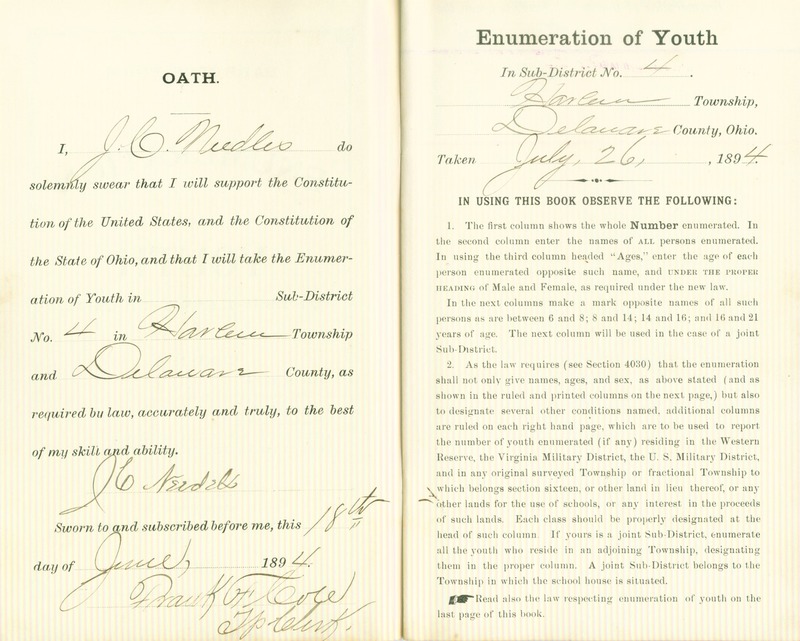 OATH.
I, J. C. Needles do
solemnly swear that I will support the Constitu-
tion of the United States, and the Constitution of
the State of Ohio, and that I will take the Enumer-
ation of Youth in Sub-District
No. 4 in Harlem Township
and Delaware County, as
required by law, accurately and truly, to the best
of my skill and ability.
J C Needels
Sworn to and subscribed before me, this 18th
day of June, 1894.
Frank F. Cole
Tp Clerk.
Enumeration of Youth
In Sub-District No. 4.
Harlem Township,
Delaware County, Ohio.
Taken July, 26, , 1894.
IN USING THIS BOOK OBSERVE THE FOLLOWING:
1. The first column shows the whole Number enumerated. In
the second column enter the names of ALL persons enumerated.
In using the third column headed "Ages," enter the age of each
person enumerated opposite such name, and UNDER THE PROPER
HEADING of Male and Female, as required under the new law.
In the next columns make a mark opposite names of all such
persons as are between 6 and 8; 8 and 14; 14 and 16; and 16 and 21
years of age. The next column will be used in the case of a joint
Sub-District.
2. As the law requires (see Section 4030) that the enumeration
shall not only give names, ages, and sex, as above stated (and as
shown in the ruled and printed columns on the next page,) but also
to designate several other conditions named, additional columns
are ruled on each right hand page, which are to be used to report
the number of youth enumerated (if any) residing in the Western
Reserve, the Virginia Military District, the U. S. Military District,
and in any original surveyed Township or fractional Township to
which belongs section sixteen, or other land in lieu thereof, or any
other lands for the use of schools, or any interest in the proceeds
of such lands. Each class should be properly designated at the
head of such column. If yours is a joint Sub-District, enumerate
all the youth who reside in an adjoining Township, designating
them in the proper column. A joint Sub-District belongs to the
Township in which the school house is situated.
Read also the law respecting enumeration of youth on the
last page of this book.